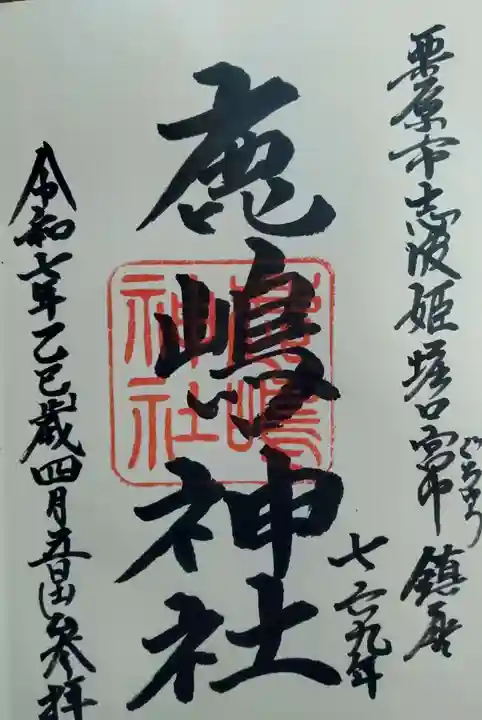 栗原市志波姫堀口宮中鎮座
ごちゅう
七六九年
鹿嶋神社
鹿嶋神社
令和七年乙巳歳四月吉日参拝